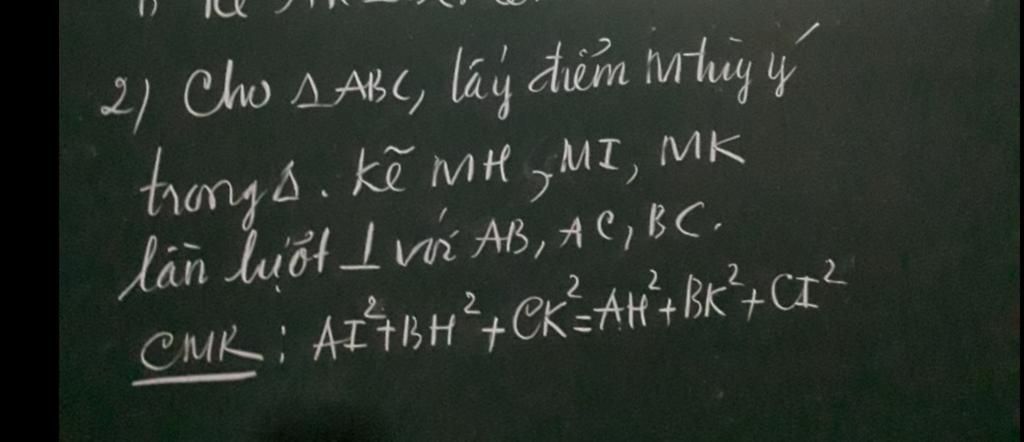 2) Cho ΔABC, lấy điểm M thùy ý
trong Δ. kẽ MH, MI, MK
lần lượt ⊥ với AB, AC, BC.
CMR: AI²+BH²+CK²=AH²+BK²+CI²